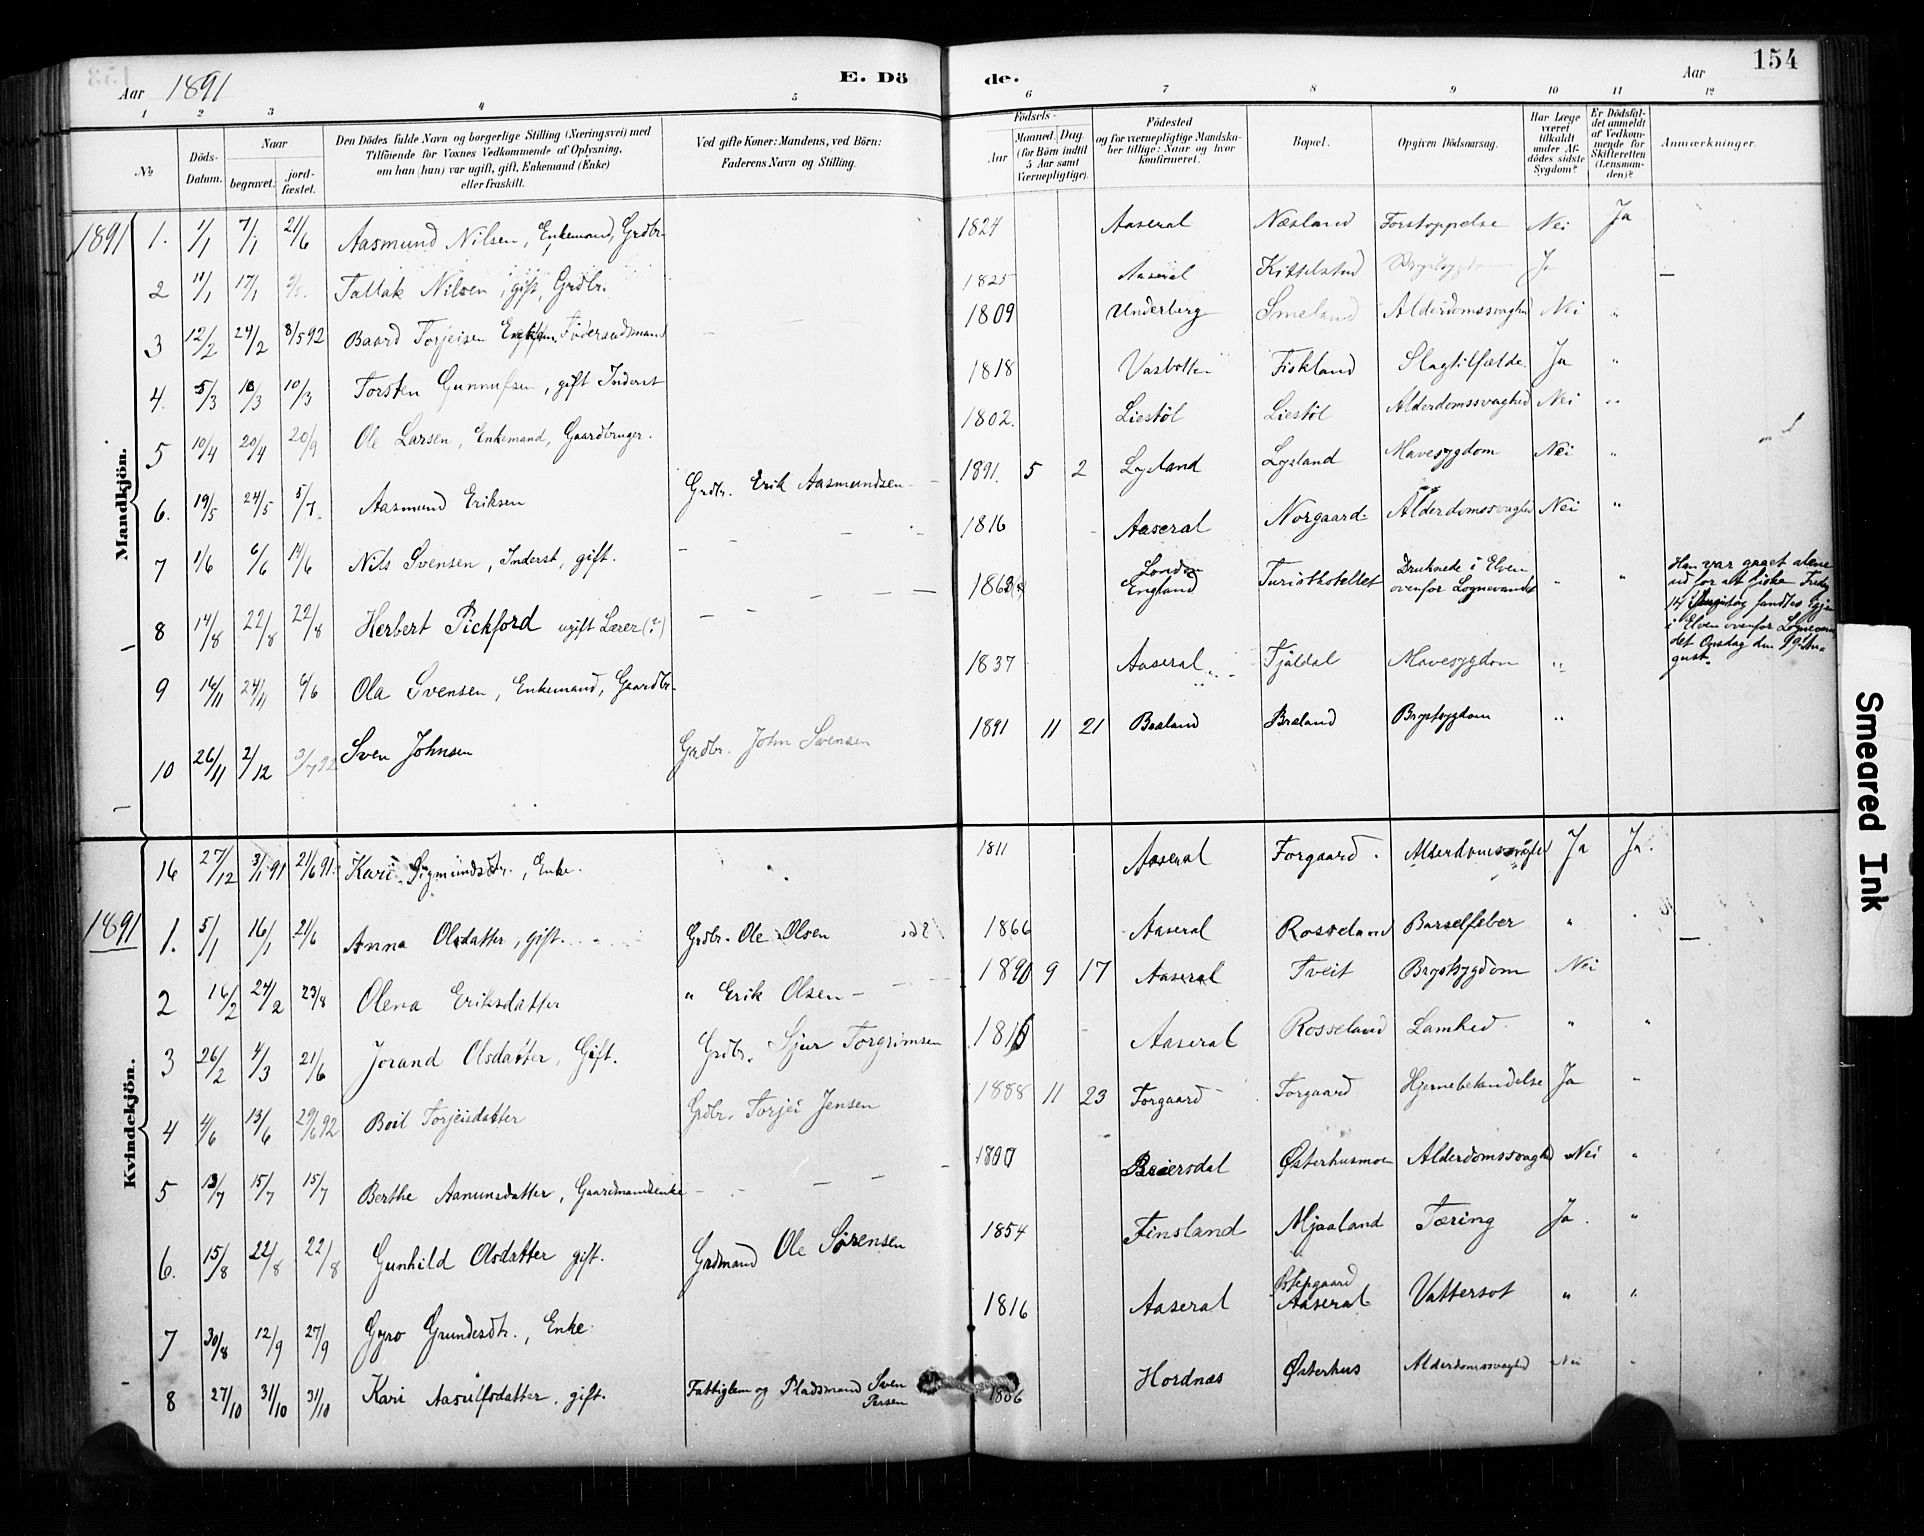 154
Aar 1891 E. Dö de. Aar
1 2 3 4 5 6 7 8 9 10 11 12
№ Döds-Datum. Naar begravet. jordfæstet. Den Dödes fulde Navn og borgerlige Stilling (Næringsvei) med Tilföiende for Voxnes Vedkommende af Oplysning, om han (hun) var ugift, gift, Enkemand (Enke) eller fraskilt. Ved gifte Koner: Mandens, ved Börn: Faderens Navn og Stilling. Födsels- Aar Maaned. Dag. (for Börn indtil 5 Aar samt Værnepligtige). Födested og for værnepligtige Mandskaber tillige: Naar og hvor konfirmeret. Bopæl. Opgiven Dödsaarsag. Har Læge været tilkaldt under Afdødes sidste Sygdom? Er Dödsfaldet anmeldt af Vedkommende for Skifteretten (Lensmanden)? Anmærkninger.
Mandkjön.
1891 1. 1/1 7/1 21/6 Aasmund Nilsen, Enkemand, Grdbr. 1824 Aaseral Næsland Forstoppelse Nei Ja
2 11/1 17/1 Tallak Nilsen, gift, Grdbr. 1825 Aaseral Kittelstad Brystsygdom Ja —
3 12/2 24/2 8/5 92 Baard Torjeisen Enkem. Föderaadsmand — — 1809 Underberg Smeland Alderdomssvaghed Nei "
4. 5/3 10/3 10/3 Torsten Gunnufsen, gift Inderst 1818 Vasbotten Fiskland Slagtilfælde Ja "
5 10/4 20/4 20/9 Ole Larsen, Enkemand, Gaardbruger. 1802. Liestöl Liestöl Alderdomssvaghed Nei "
6. 19/5 24/5 5/7 Aasmund Eriksen Grdbr. Erik Aasmundsen 1891. 5 2 Lysland Lysland Mavesygdom Nei "
7 1/6 6/6 14/6 Nils Svensen, Inderst, gift. — — — — 1816 Aaseral Norgaard Alderdomssvaghed Nei "
8 14/8 22/8 22/8 Herbert Pickford ugift Lærer (?) — — London England Turisthotellet Druknede i Elven ovenfor Lognevandet " "
Han var gaaet alene
ud for at fiske Fredag
14 August og fandtes igjen
i Elven ovenfor Lognevan
det Onsdag den 19 Au=
gust.
9 16/11 24/11 6/6 Ola Svensen, Enkemand, Gaardbr. 1837 Aaseral Tjaldal Mavesygdom "
10 26/11 2/12 3/7 92 Sven Johnsen Grdbr. John Svensen 1891 11 21 Braland Braland Brystsygdom "
Kvindekjön.
16 27/12 3/1 91 21/6 91. Kari Sigmundsdtr., Enke. 1811 Aaseral Forgaard. Alderdomssvaghed Ja Ja.
1891 1. 5/1 16/1 21/6 Anna Olsdatter, gift. Grdbr. Ole Olsen 1866 Aaseral Rosseland Barselfeber " —
2 16/2 24/2 23/8 Olena Eriksdatter " Erik Olsen — 1890 9 17 Aaseral Tveit Brystsygdom Nei
3 26/2 4/3 21/6 Jorand Olsdatter, Gift. Grdbr. Sjur Torgrimsen Aaseral Rosseland Lamhed. " "
4 4/6 13/6 29/6 92 Boil Torjeisdatter Grdbr. Torjei Jensen 1888 11 23 Forgaard Forgaard Hjernebetændelse Ja "
5 13/7 15/7 15/7 Berthe Aanunsdatter, Gaardmandsenke — — — — Beiersdal Østerhusmoen Alderdomssvaghed Nei "
6. 15/8 22/8 22/8 Gunhild Olsdatter gift. Grdmand Ole Sørensen 1854 Finsland Mjaaland Tæring Ja. "
7 30/8 12/9 27/9 Gyro Grundesdtr., Enke. 1816 Aaseral Østegaard Aaseral Vattersot " "
8 27/10 31/10 31/10 Kari Aasulfsdatter, gift. Fattiglem og Pladsmand Sven Persen 1806 Hordnæs Østerhus Alderdomssvaghed Nei "
Smeared Ink